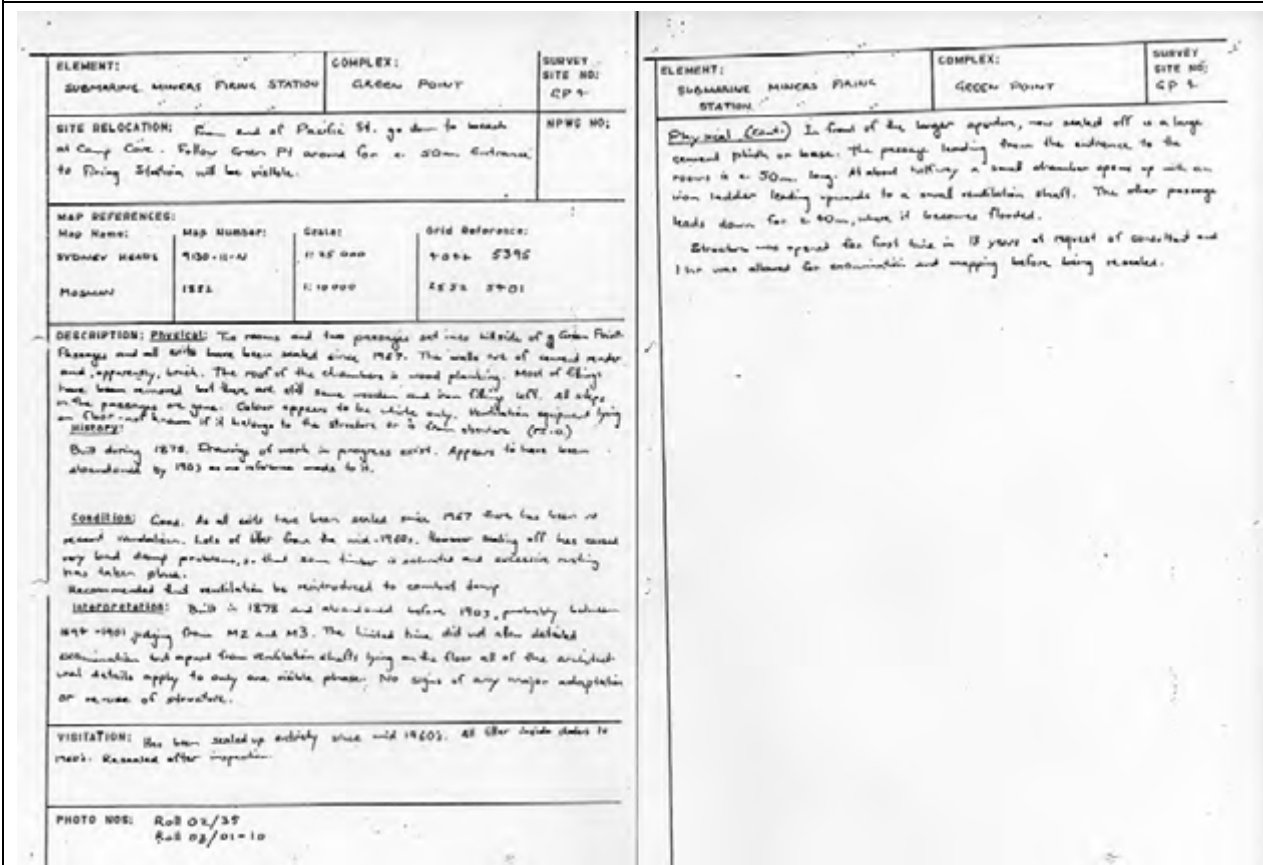 ELEMENT:
SUBMARINE MINERS FIRING STATION
COMPLEX:
GREEN POINT
SURVEY SITE NO:
GP
SITE RELOCATION: From end of Pacific St. go down to beach
at Camp Cove. Follow Green Pt around for c. 50m Entrance
to Firing Station will be visible.
NPWS NO:
MAP REFERENCES:
Map Name: Map Number: Scale: Grid Reference:
SYDNEY HEADS 9130-11-N 1:25 000 5395
MOSMAN 1:10000
DESCRIPTION: Physical: Two rooms and two passages set into hillside of Green Point
Passages and all exits have been sealed since 1967. The walls are of cement render
and, apparently, brick. The roof of the chambers is wood planking. Most of fittings
have been removed but there are still some wooden and iron fitting left. All steps
in the passages are gone. Colour appears to be white only. Ventilation equipment lying
on floor - not known if it belongs to the structure or is from
History:
Built during 1878. Drawings of work in progress exist. Appears to have been
abandoned by 1903 as no reference made to it.
Condition: Good. As all exits have been sealed since 1967 there has been no
recent vandalism. Lots of litter from the mid-1960s. However sealing off has caused
very bad damp problems, so that some timber is saturated and excessive rusting
has taken place.
Recommended that ventilation be reintroduced to combat damp
Interpretation: Built in 1878 and abandoned before 1903, probably between
judging from M2 and M3. The limited time did not allow detailed
examination but apart from ventilation shafts lying on the floor all of the architect-
ural details apply to only one visible phase. No signs of any major adaptation
or re-use of structure.
VISITATION: Has been sealed up entirely since mid 1960s. All litter inside dates to
Resealed after inspection.
PHOTO NOS: Roll 02/35
Roll 03/01-10
ELEMENT:
SUBMARINE MINERS FIRING
STATION
COMPLEX:
GREEN POINT
SURVEY SITE NO:
GP
Physical (Cont.) In front of the larger aperture, now sealed off is a large
cement plinth or base. The passage leading from the entrance to the
rooms is c. 50m long. At about halfway a small chamber opens up with an
iron ladder leading upwards to a small ventilation shaft. The other passage
leads down for c 40m, where it becomes flooded.
Structure was opened for first time in 18 years at request of consultant and
1 hr was allowed for examination and mapping before being resealed.